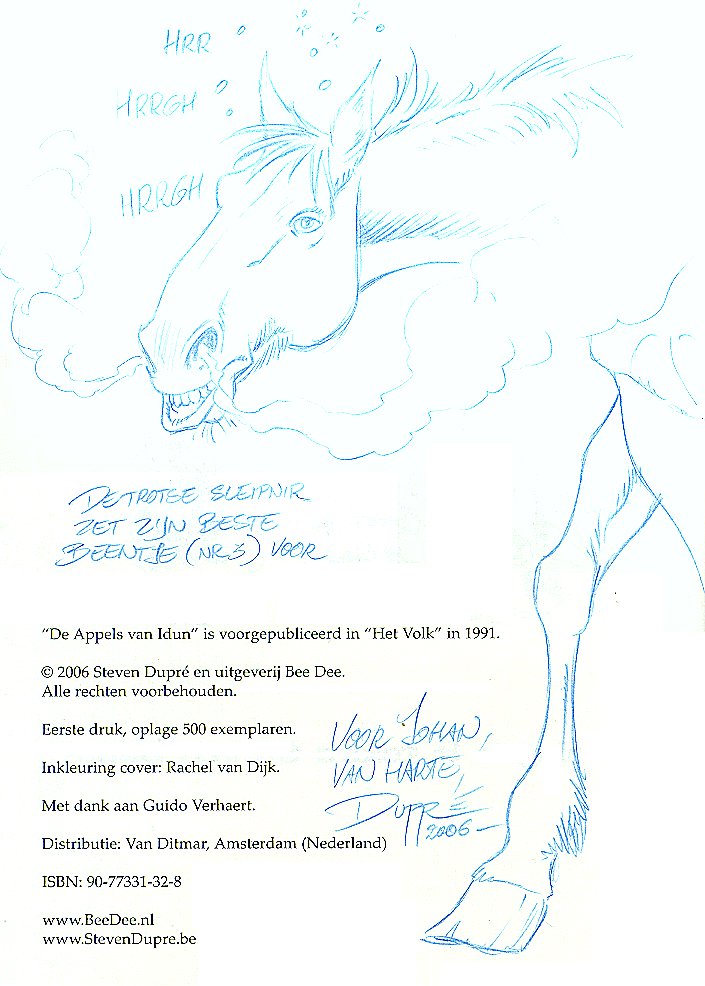 HRR
HRRGH
HRRGH
DE TROTSE SLEIPNIR
ZET ZIJN BESTE
BEENTJE (NR 3) VOOR
"De Appels van Idun" is voorgepubliceerd in "Het Volk" in 1991.
© 2006 Steven Dupré en uitgeverij Bee Dee.
Alle rechten voorbehouden.
Eerste druk, oplage 500 exemplaren.
Inkleuring cover: Rachel van Dijk.
Met dank aan Guido Verhaert.
Distributie: Van Ditmar, Amsterdam (Nederland)
ISBN: 90-77331-32-8
www.BeeDee.nl
www.StevenDupre.be
VOOR JOHAN,
VAN HARTE,
DUPRÉ
2006